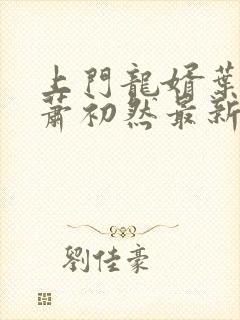 上門龍婿葉
蕭初然最新
劉佳豪